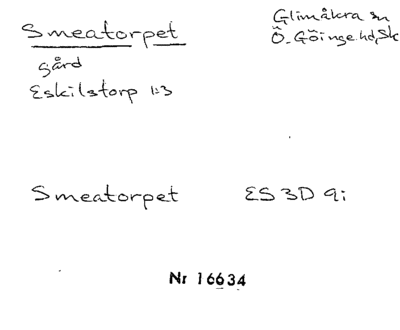 Smeatorpet
gård
Eskilstorp 1:3
Glimåkra sn
Ö. Göinge hd, Sk
Smeatorpet ES 3D 9i
Nr 16634